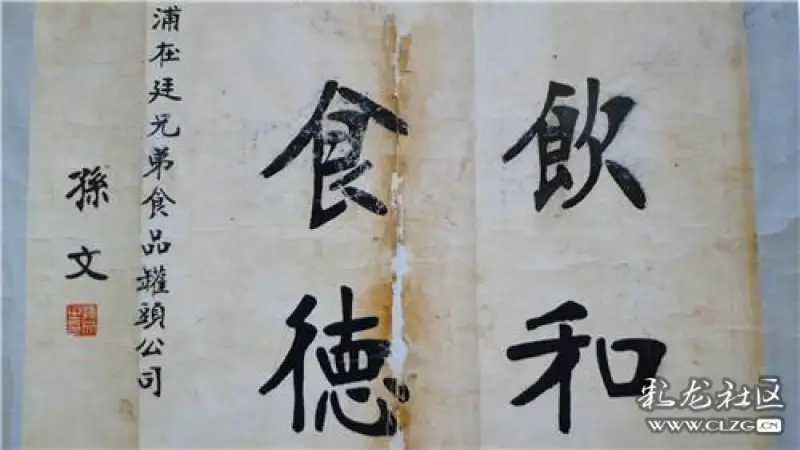 飲和
食德
浦在廷兄弟食品罐頭公司
孫文
彩龙社区
WWW.CLZG.CN